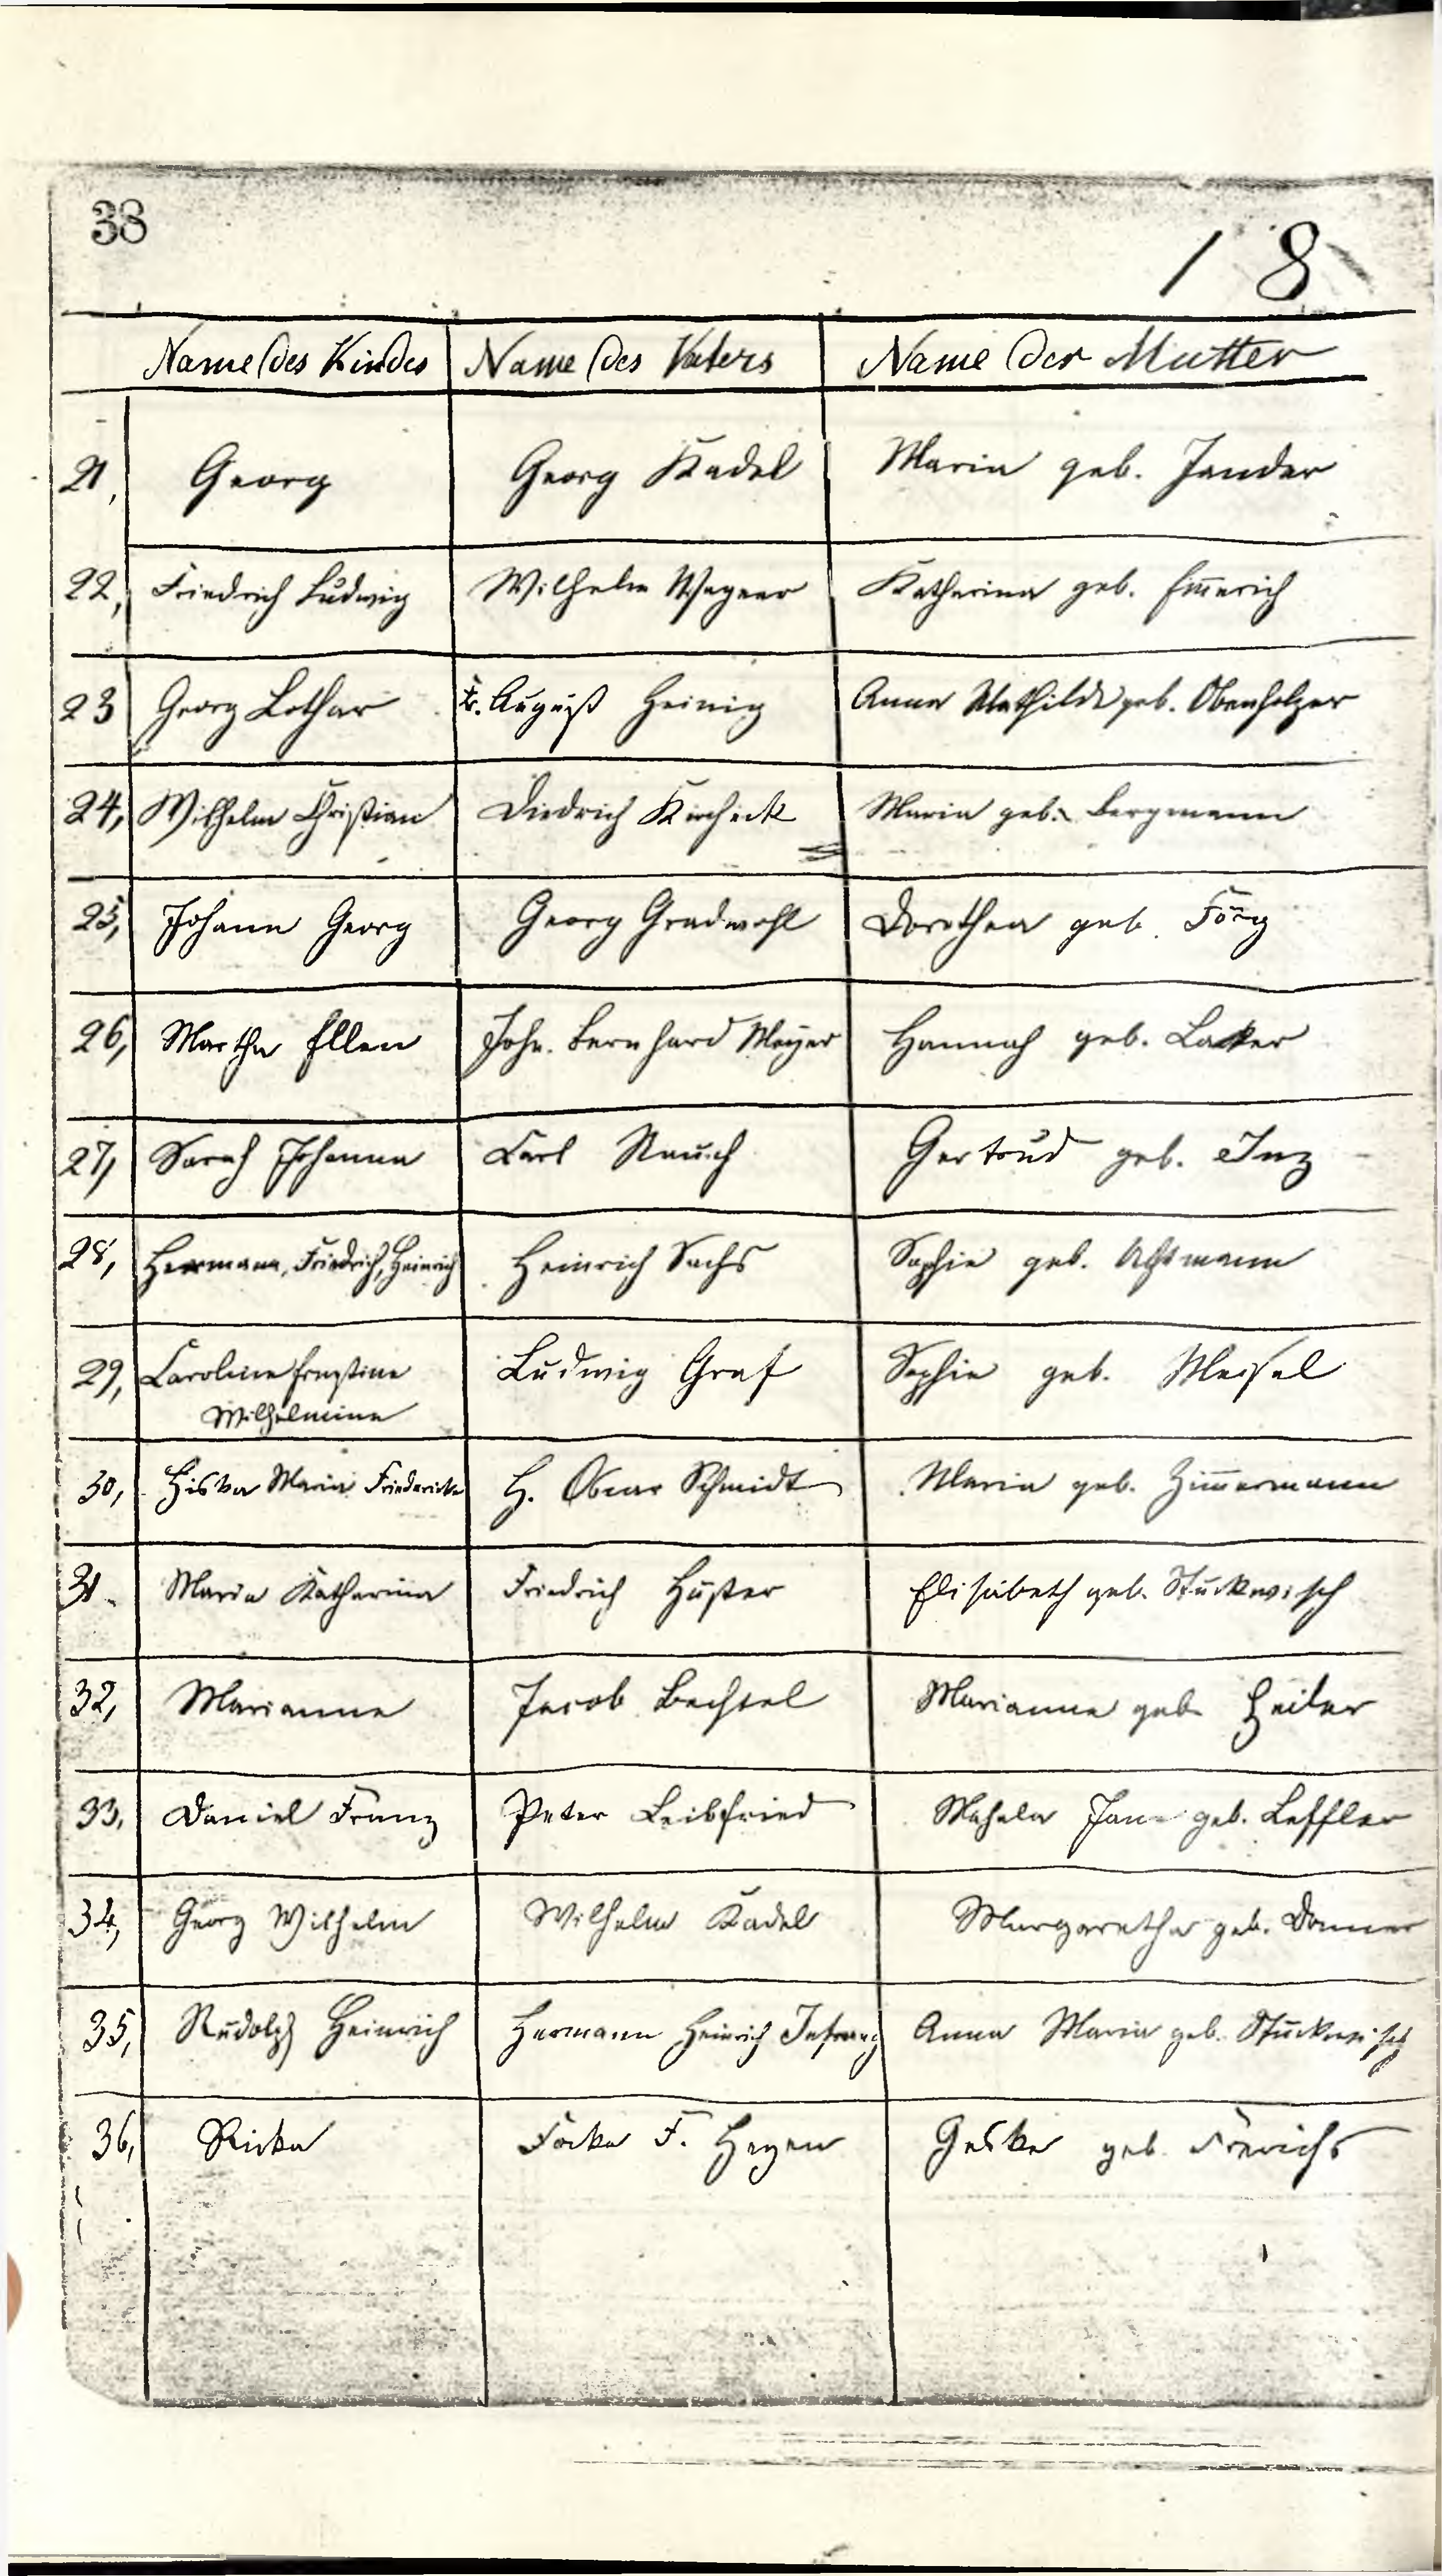 38
18
Name des Kindes Name des Vaters Name der Mutter
21, Georg Georg Kadel Maria geb. Jander
22, Friedrich Ludwig Wilhelm Wagner Katharina geb. Em̄erich
23 Georg Lothar Fr. August Heinig Anna Mathilde geb. Obenholzer
24, Wilhelm Christian Diedrich Maria geb. Bergmann
25, Johann Georg Georg Gradwohl Dorothea geb.Förg
26, Martha Ellen Joh. Bernhard Meyer Hannah geb.
27, Sarah Johanna Carl Rausch Gertrud geb.
28, Hermann, Friedrich, Heinrich Heinrich Sachs Sophie geb.
29, Caroline Ernstine Ludwig Graf Sophie geb. Meisel
Wilhelmine
30, Maria Friedericke H. Schmidt Maria geb. Zim̄ermann
31. Maria Katharina Friedrich Huster Elisabeth geb. Stuckwisch
32, Marianna Jacob Bechtel Marianna geb. Heiler
33, Daniel Franz Peter Leibfried Mahala Jane geb. Leffler
34, Georg Wilhelm Wilhelm Kadel Margaretha geb. Donner
35, Rudolph Heinrich Hermann Heinrich Anna Maria geb. Stuckwisch
36, Ricka Focka F. Heyen Geske geb. Frerichs